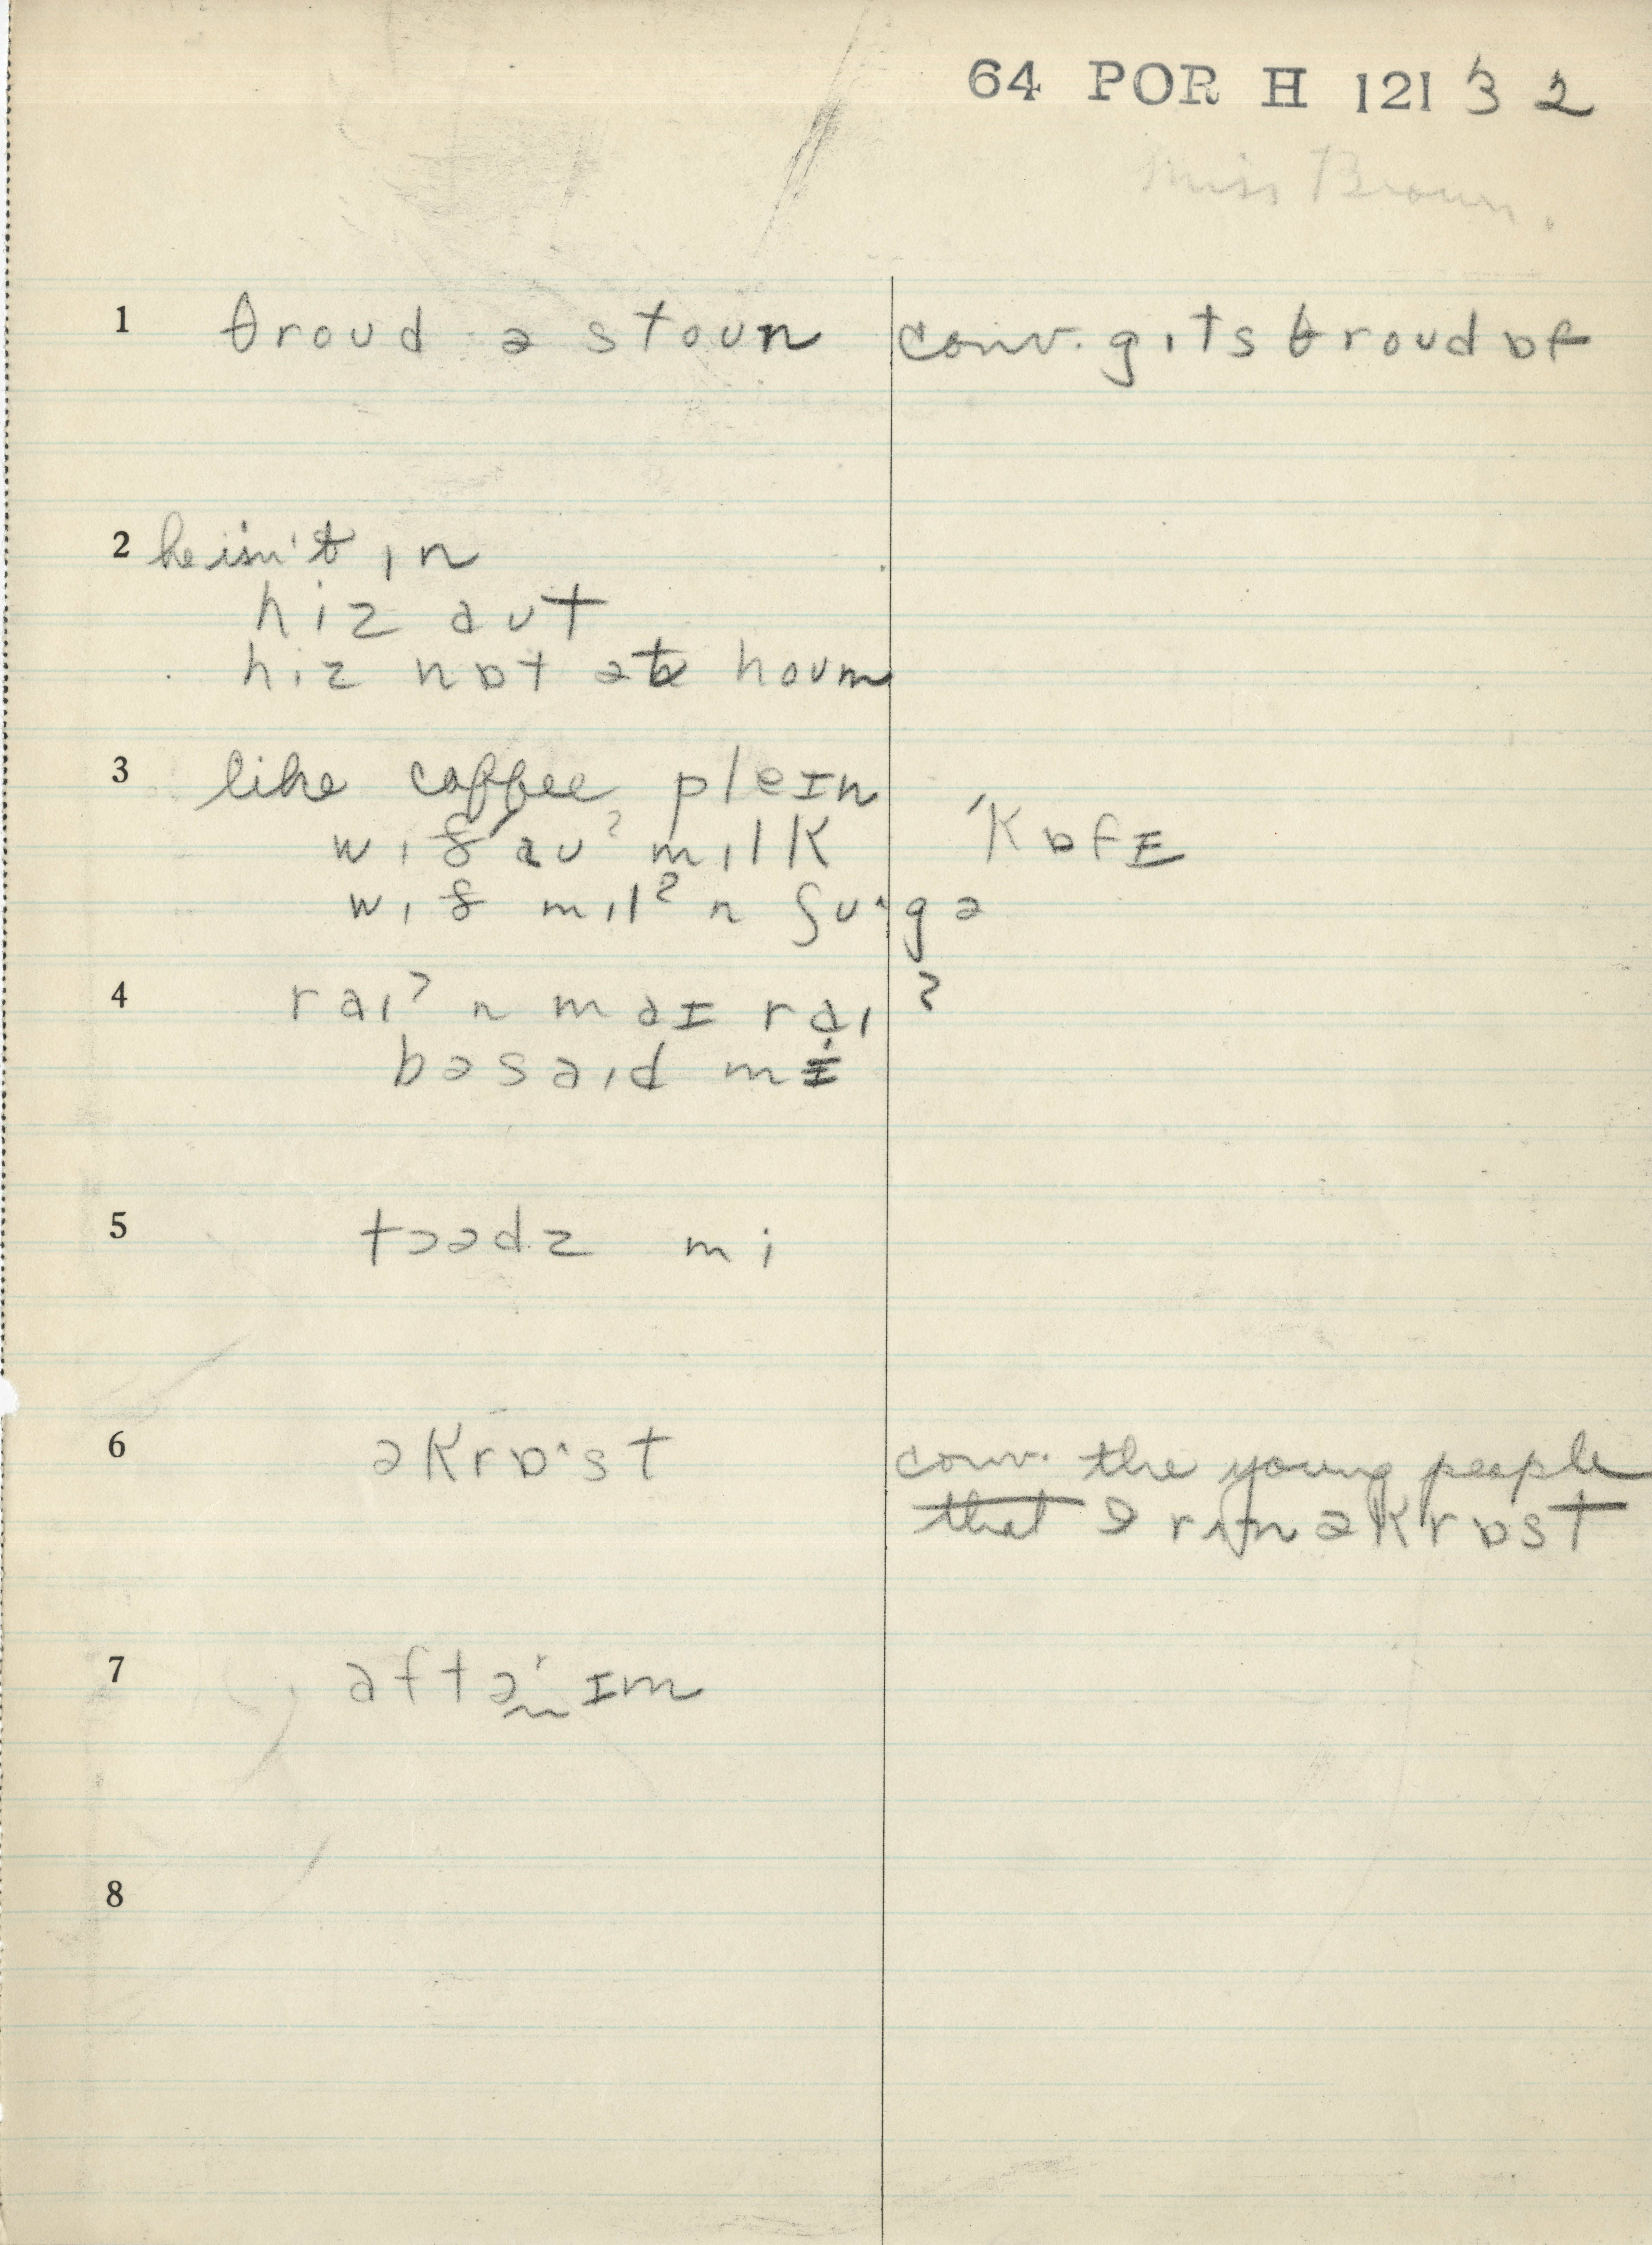 64 POR H 121 3 2
Miss Brown.
1 θroud ə stoun conv. gɪts θroud ɒf
2 he isn't ɪn
hiz aut
hiz nɒt ət houm
3 like coffee pleɪn
wɪðau? mɪlk 'kɒfɪ
wɪð mɪl? n ʃu·gə
4 raɪ? n maɪ raɪ?
bəsaɪd mi
5 tɔədz mi
6 əkrɒ·st conv. the young people
that I rʌn əkrɒst
7 aftər ɪm
8